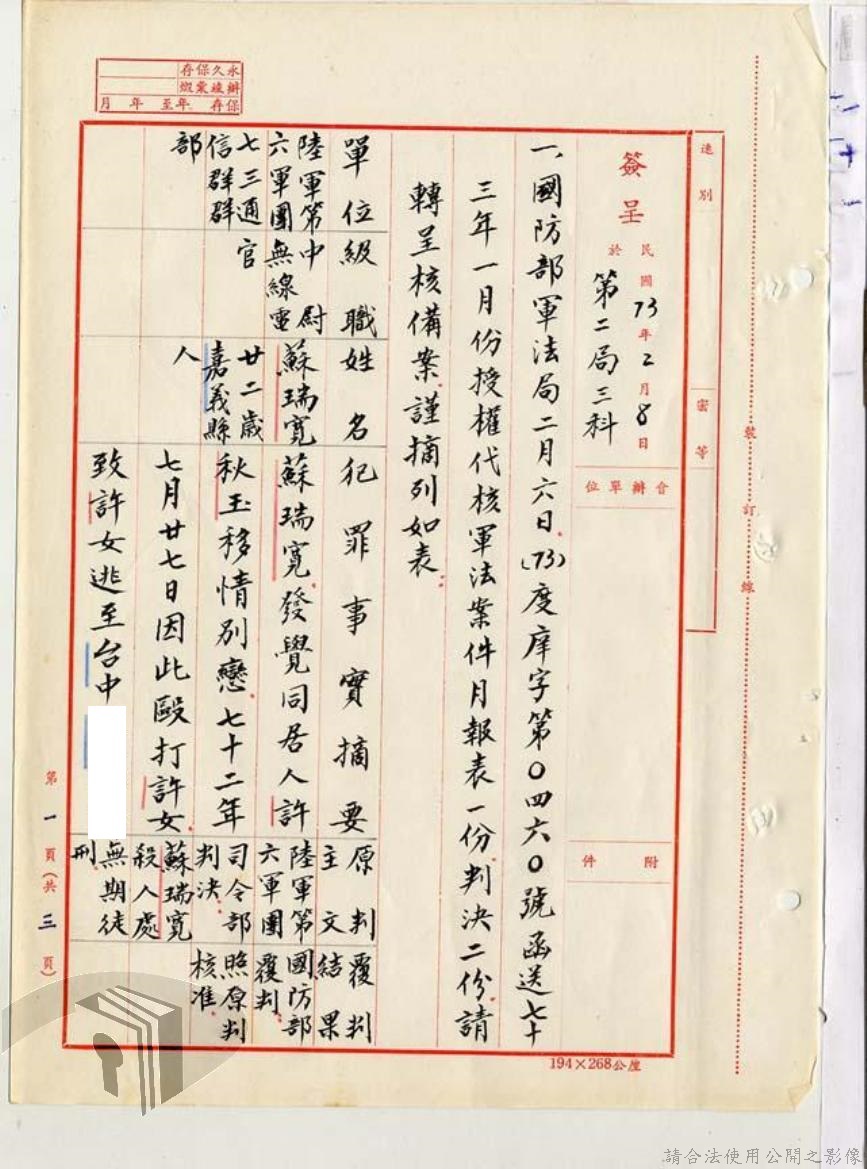 永久保存
辦後彙燬
保存 年至 年 月
速別
密等
裝訂線
簽呈
民國73年2月8日
於 第二局三科
會辦單位
附件
一、國防部軍法局二月六日(73)度庠字第0四六0號函送七十
三年一月份授權代核軍法案件月報表一份、判決二份、請
轉呈核備案、謹摘列如表。
單位
級職
姓名
犯罪事實摘要
原判主文
覆判結果
陸軍第
六軍團
七三通
信群群
部
中尉
無線電
官
蘇瑞寬
廿二歲
嘉義縣
人
蘇瑞寬發覺同居人許
秋玉移情別戀。七十二年
七月廿七日因此毆打許女。
致許女逃至台中
陸軍第
六軍團
司令部
判決。
蘇瑞寬
殺人處
無期徒
刑。
國防部
覆判。
照原判
核准。
第一頁(共三頁)
194×268公厘
請合法使用公開之影像